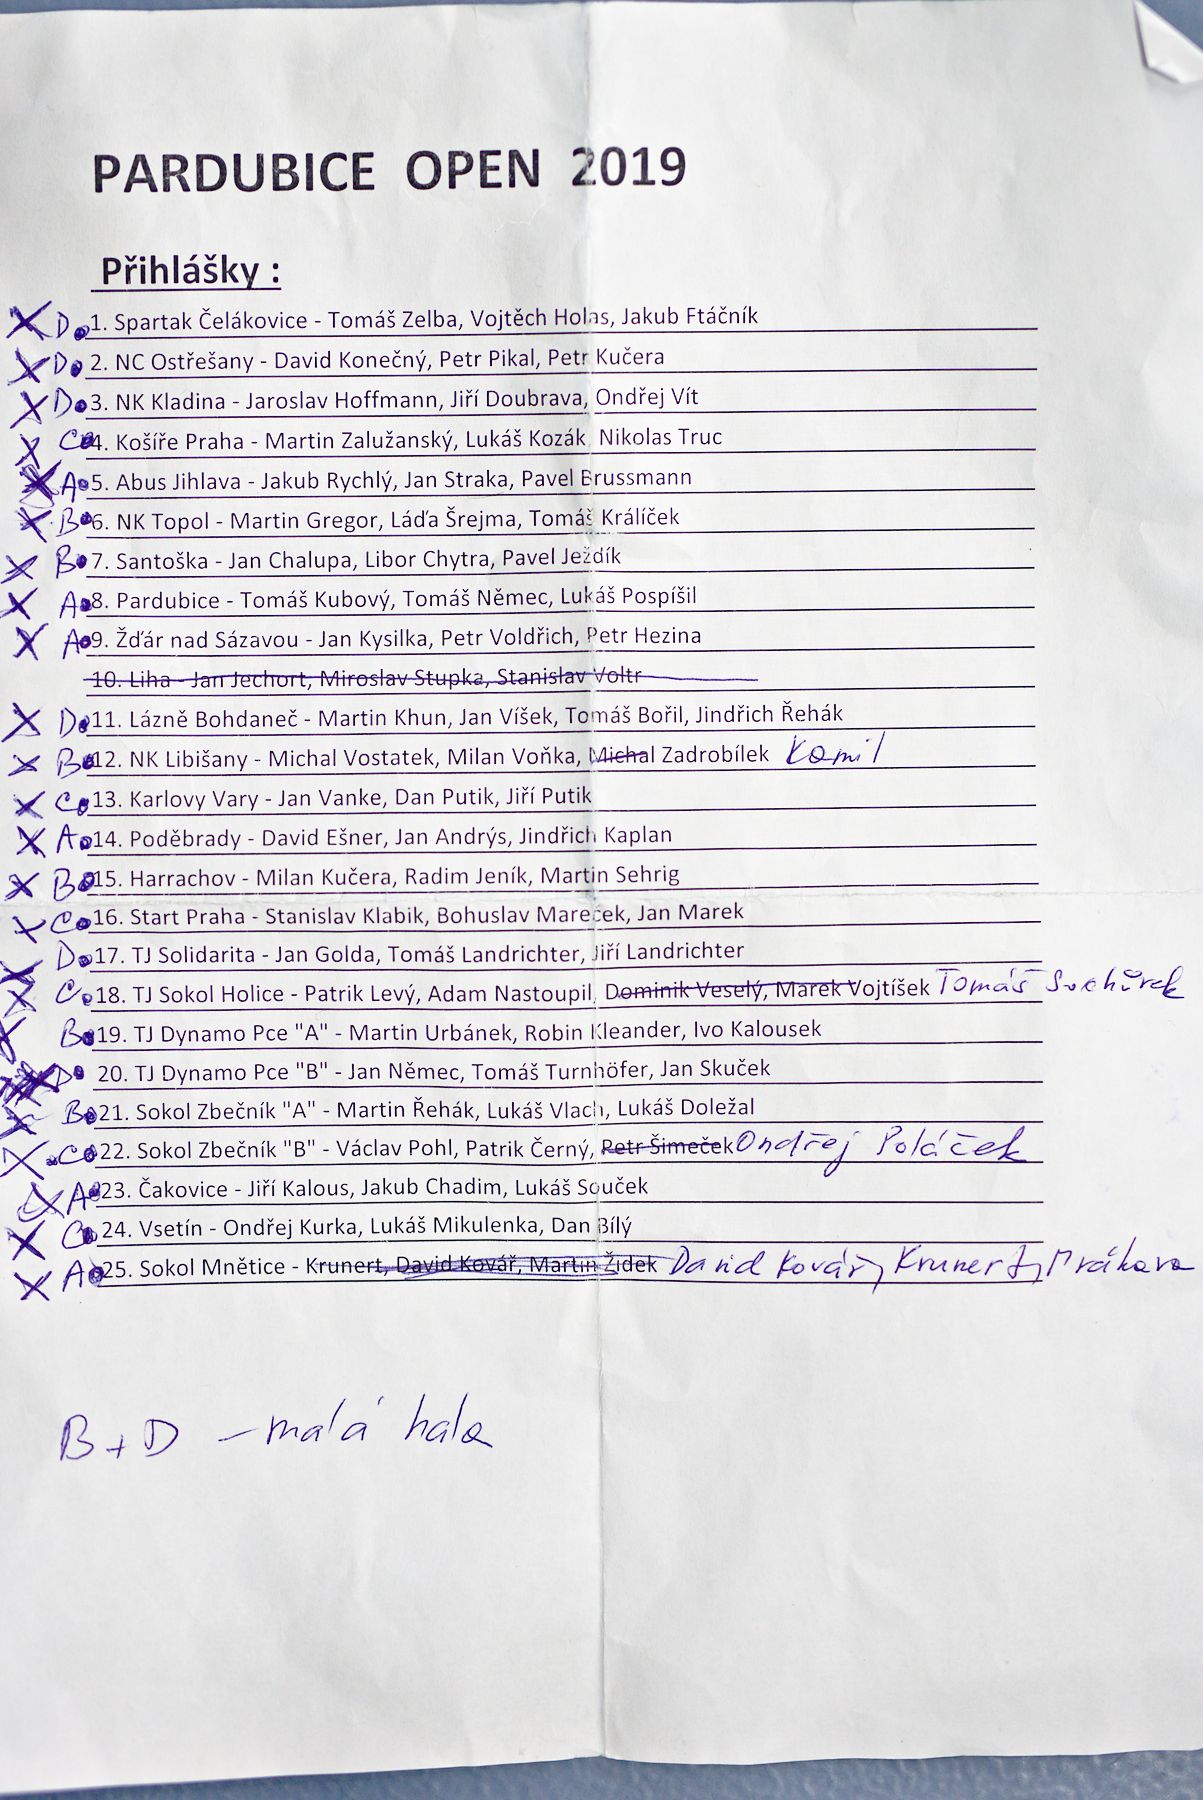 PARDUBICE OPEN 2019
Přihlášky :
X D. 1. Spartak Čelákovice - Tomáš Zelba, Vojtěch Holas, Jakub Ftáčník
X D. 2. NC Ostřešany - David Konečný, Petr Pikal, Petr Kučera
X D. 3. NK Kladina - Jaroslav Hoffmann, Jiří Doubrava, Ondřej Vít
X C 4. Košíře Praha - Martin Zalužanský, Lukáš Kozák, Nikolas Truc
X A 5. Abus Jihlava - Jakub Rychlý, Jan Straka, Pavel Brussmann
X B 6. NK Topol - Martin Gregor, Láďa Šrejma, Tomáš Králíček
X B 7. Santoška - Jan Chalupa, Libor Chytra, Pavel Ježdík
X A 8. Pardubice - Tomáš Kubový, Tomáš Němec, Lukáš Pospíšil
X A 9. Žďár nad Sázavou - Jan Kysilka, Petr Voldřich, Petr Hezina
10. Liha - Jan Jechort, Miroslav Stupka, Stanislav Voltr
X D. 11. Lázně Bohdaneč - Martin Khun, Jan Víšek, Tomáš Bořil, Jindřich Řehák
X B 12. NK Libišany - Michal Vostatek, Milan Voňka, Michal Zadrobílek Kamil
X C. 13. Karlovy Vary - Jan Vanke, Dan Putik, Jiří Putik
X A. 14. Poděbrady - David Ešner, Jan Andrýs, Jindřich Kaplan
X B 15. Harrachov - Milan Kučera, Radim Jeník, Martin Sehrig
X C. 16. Start Praha - Stanislav Klabik, Bohuslav Mareček, Jan Marek
X D. 17. TJ Solidarita - Jan Golda, Tomáš Landrichter, Jiří Landrichter
X C. 18. TJ Sokol Holice - Patrik Levý, Adam Nastoupil, Dominik Veselý, Marek Vojtíšek Tomáš Suchůrek
X B 19. TJ Dynamo Pce "A" - Martin Urbánek, Robin Kleander, Ivo Kalousek
X D 20. TJ Dynamo Pce "B" - Jan Němec, Tomáš Turnhöfer, Jan Skuček
X B. 21. Sokol Zbečník "A" - Martin Řehák, Lukáš Vlach, Lukáš Doležal
X C 22. Sokol Zbečník "B" - Václav Pohl, Patrik Černý, Petr Šimeček Ondřej Poláček
X A 23. Čakovice - Jiří Kalous, Jakub Chadim, Lukáš Souček
X C 24. Vsetín - Ondřej Kurka, Lukáš Mikulenka, Dan Bílý
X A 25. Sokol Mnětice - Krunert, David Kovář, Martin Židek David Kovář, Krunert
B + D - malá hala